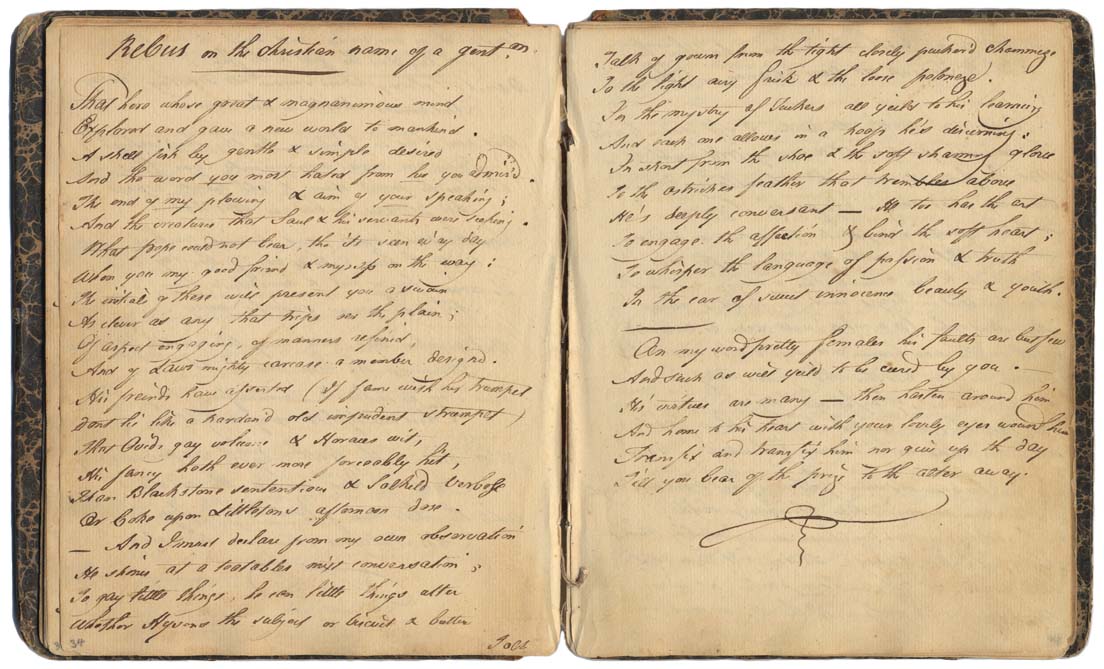 Rebus on the christian name of a gentan.
That hero whose great & magnanimous mind
Explored and gave a new world to mankind.
A shell fish by gentle & simple desired
And the word you most hated from his you admir'd.
The end of my plowing & aim of your speaking;
And the creatures that Saul & his servants were seeking.
What pope could not bear, tho its seen ev'ry day
When you my good friend & myself on the way:
The initials of these will present you a swain
As clever as any that trips oer the plain;
Of aspect engaging, of manners refined,
And of Laws mighty carcase a member design'd.
His friends have asserted (if fame with her trumpet
dont lie like a harden'd old impudent strumpet)
That Ovids gay volume & Horaces wit,
His fancy hath ever more forceably hit,
Than Blackstone sententious & Salkeld verbose
Or Coke upon Littletons afternoon dose.
— And I must declare from my own observation
He shines at a teatables mixt conversation;
To gay little things, he can little things utter
Whether Hymens the subject or biscuit & butter
Talk
Talk of gowns from the tight closely pucker'd chammeze
To the light airy frisk & the loose poloneze.
In the mystery of Tuckers all yield to his learning
And each one allows in a hoop he's discerning:
In short from the shoe & the soft shammy glove
To the ostriches feather that trembles above
He's deeply conversant — He too has the art
To engage the affection & bind the soft heart;
To whisper the language of passion & truth
In the ear of sweet innocence beauty & youth.
On my word pretty females his faults are but few
And such as will yield to be cured by you. —
His virtues are many — then hasten around him
And home to his heart with your lovely eyes wound him
Transfix and transfix him nor give up the day
Till you bear of the prize to the alter away.
34